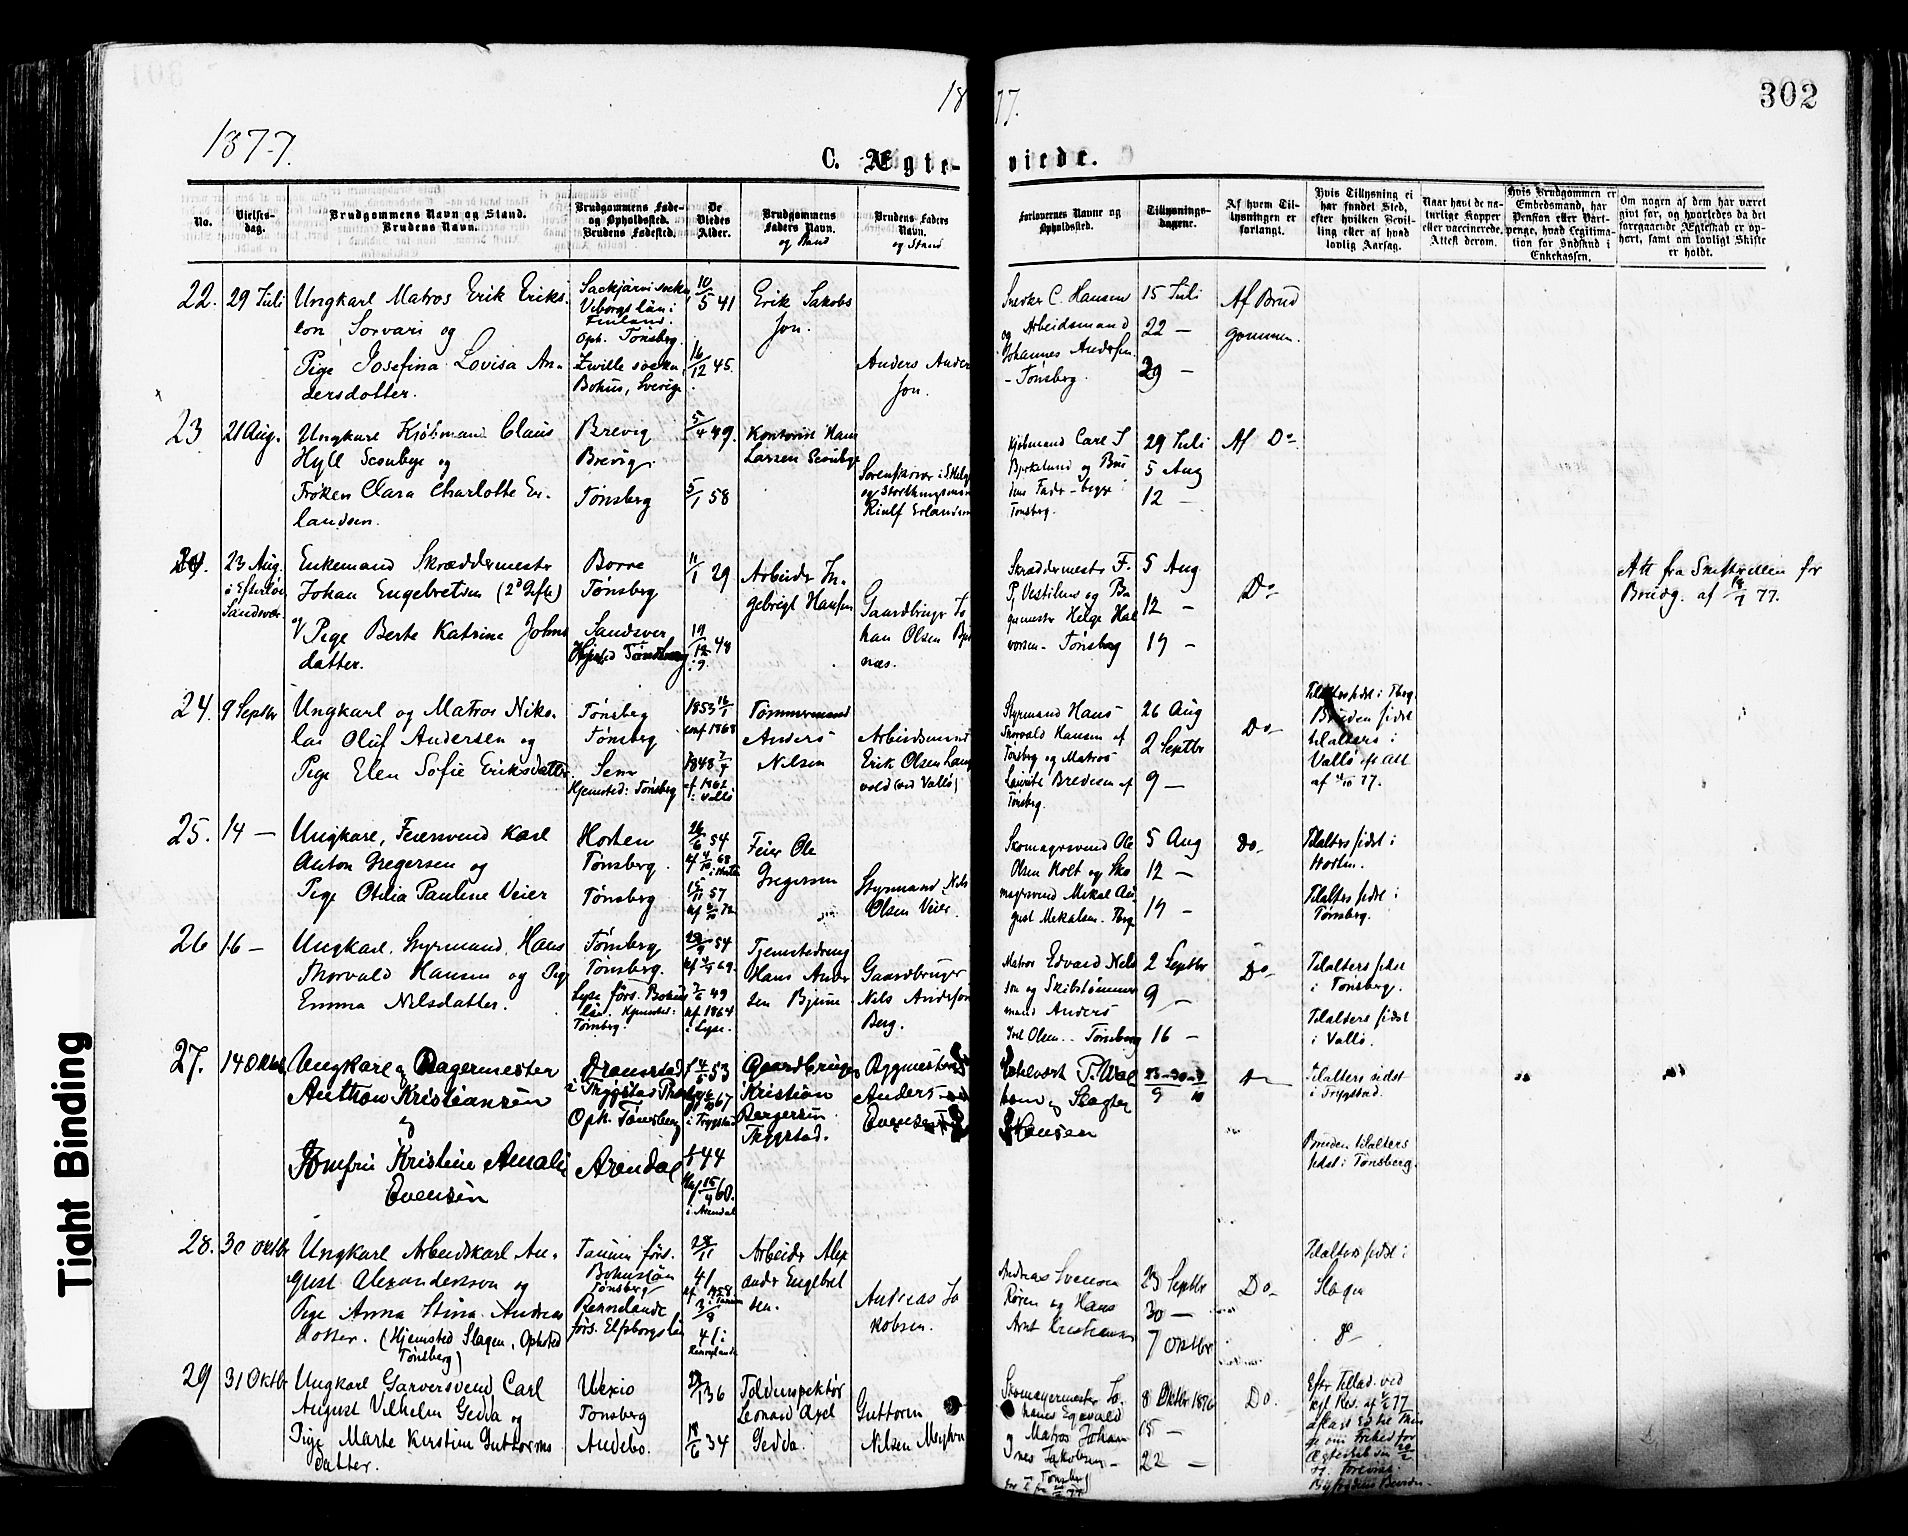 302
18 77.
1877.
C. Ægte- viede.
No.
Vielses-
dag.
Brudgommens Navn og Stand.
Brudens Navn.
Brudgommens Føde-
og Opholdssted.
Brudens Fødested.
De
Viedes
Alder.
Brudgommens
Faders Navn.
og Stand
Brudens Faders
Navn.
og Stand
Forlovernes Navne og
Opholdssted.
Tillysnings-
dagene.
Af hvem Til-
lysningen er
forlangt.
Hvis Tillysning ei
har fundet Sted,
efter hvilken Bevil-
ling eller af hvad
lovlig Aarsag.
Naar havt de na-
turlige Kopper
eller vaccinerede,
Attest derom.
Hvis Brudgommen er
Embedsmand, har
Pension eller Vart-
penge, hvad Legitima-
tion for Indskud i
Enkekassen.
Om nogen af dem har været
gift før, og hvorledes da det
foregaaende Ægteskab er op-
hørt, samt om lovligt Skifte
er holdt.
22. 29 Juli
Ungkarl Matros Erik Eriks-
son, Sorvari og
Pige Josefina Lovisa An-
dersdotter.
Viborgs län i
Finland.
Oph. Tønsberg.
Bohus, Sverige
10/5 41
16/12 45.
Erik Jakobs
son.
Anders Anders
son.
Snedker C. Hansen
og Arbeidsmand
Johannes Andersen
- Tønsberg.
15 Juli
22 -
29 -
Af Brud
gommen.
23 21 Aug.
Ungkarl Kjøbmand Claus
Hyll Scoubye og
Frøken Clara Charlotte Er-
landsen.
Brevig
Brevig.
Tønsberg
5/4 49.
5/1 58
Kontorist Hans
Larsen Scoubye
Sorenskriver i Skelq
og Storthingsmand
Riulf Erlandsen
Kjøbmand Carl S
Bjerkelund og Bru
dens Fader - begge i
Tønsberg.
29 Juli
5 Aug
12 -
Af Do
24. 23 Aug.
Sandsver.
Enkemand Skræddermester
Johan Engebretsen (2d Gifte)
og Pige Berte Katrine Johns
datter.
Borre
Tønsberg
Sandsver
Hjemsted Tønsberg
11/1 29
19/12 48
Arbeider In-
gebrigt Hansen
Gaardbruger Jo
han Olsen
næs.
Skræddermester F.
P. Vestilius og Bø
germester Helge Hal
vorsen - Tønsberg
5 Aug
12 -
19 -
Do
Att fra Skifteretten for
Brudg. af 77.
24. 9 Septbr
Ungkarl og Matros Niko-
lai Oluf Andersen og
Pige Elen Sofie Eriksdatter
Tønsberg
Tønsberg
Sem
Hjemsted: Tønsberg
1853 16/1
conf 1868
1848 2/4
cf 1862
i Vallø
Tømmermand
Anders
Nilsen
Arbeidsmand
Erik Olsen
vold (ved Vallø)
Styrmand Hans
Thorvald Hansen af
Tønsberg og Matros
Lauritz Bredesen af
Tønsberg.
26 Aug
2 Septbr
9 -
Do
Tilalters sidst i Tbrg.
Bruden sidst
tilalters i
Vallø eft Att
af 77.
25. 14 -
Ungkarl, Feiersvend Karl
Anton Gregersen og
Pige Otilia Pauline Veier
Horten
Tønsberg.
Tønsberg
26/6 54
15/11 57
Feier Ole
Gregersen
Styrmand Nils
Olsen Veier.
Skomagersvend Ole
Olsen Holt og Sko
magersvend Mikal Au
gust Mikalsen. Tbrg
5 Aug
12 -
19 -
Do
Tilalters sidst i
Horten.
Tilalters sidst i
Tønsberg.
26 16 -
Ungkarl. Styrmand, Hans
Thorvald Hansen og Pige
Emma Nilsdatter.
Tønsberg
Tønsberg.
Lyse förs. Bohus
län. Hjemsted:
Tønsberg.
23/9 54
cf 4/4 69.
7/6 49
cf. 1864
i Lyse.
Tjenestedreng
Hans Ander
sen Bjune
Gaardbruger
Nils Andersson
Berg.
Matros Edvard Nels
son og Skibstømmer
mand Anders
Olsen - Tønsberg
2 Septbr
9 -
16 -
Do
Tilalters sidst
i Tønsberg.
Tilalters sidst
i Vallø.
27. 14 Oktbr.
Ungkarl og Bagermester
Anthon Kristiansen
og
Jomfru Kristine Amalie
Evensen
i Trygstad
Oph. Tønsberg
Arendal
53
67
i Trygstad
f 44
Kf 15/4 60.
i Arendal
Gaardbruger
Kristian
Bergersen
Trygstad.
Rygmester
Anders
Evensen
og Slagter
Hansen
23-30-7
9 10
Do
Tilalters sidst
i Trygstad.
Bruden tilalters
sidst i Tønsberg.
28. 30 Oktbr
Ungkarl Arbeidskarl Au-
gust Alexandersson og
Pige Anna Stina Andreas
dotter. (Hjemsted Slagen, Opholdsted
Tønsberg)
Tanum förs.
Bohuslän
Tønsberg
Rennelanda
förs. Elfsborgslän
28/11
41
cf. 1858
i Tanum
3/9
41 i
Rennelanda
Arbeider Alex
ander Engebret
sen.
Andreas Ja
kobsen.
Andreas Svensen
Røren og Hans
Arnt Kristiansen
23 Septbr
30 -
7 Oktbr
Do
Tilalters sidst i
Slagen
29 31 Oktbr
Ungkarl Garversvend Carl
August Vilhelm Gedda og
Pige Marte Kirstine Guttorms
datter.
Wexiö
Tønsberg
Andebo.
36
18/6 34
Toldinspektør
Leonard Axel
Gedda.
Guttorm
Nilsen
Skomagermester Jo
hannes Egevald
og Matros Johan
nes Jakobsen -
Tønsberg
8 Oktbr 1876
15 -
22 -
Do.
Eftr Tillad. ved
kgl. Res. af 77
aflagt Ed
om Frihed for
Ægteskab
Tight Binding